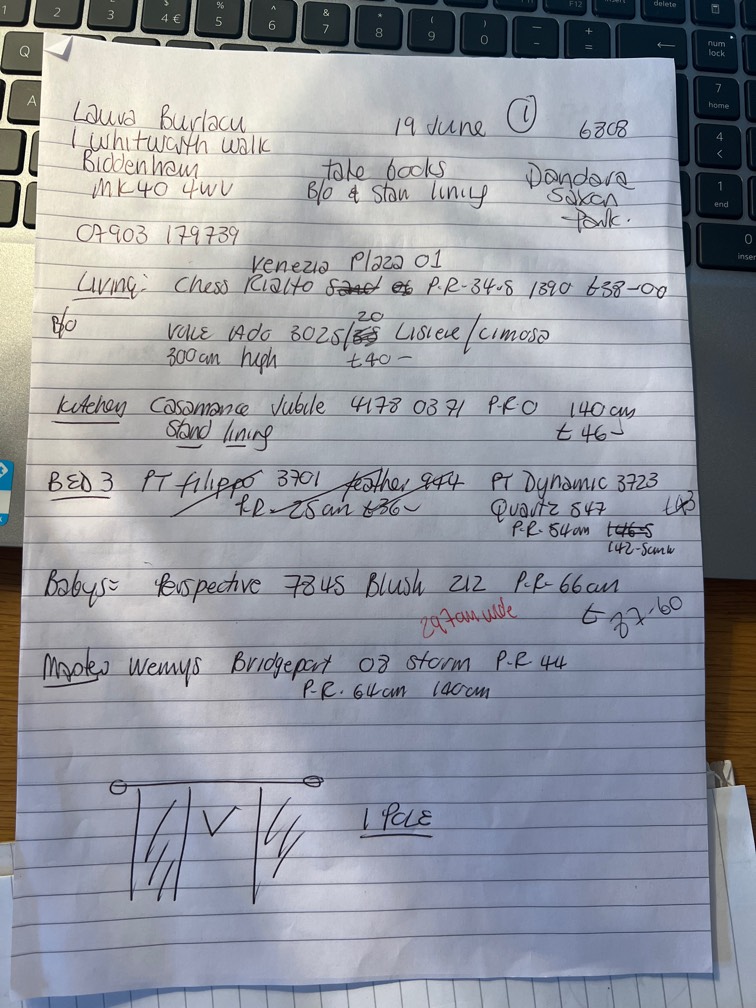 Laura Burlacu 19 June ① 6308
1 Whitworth Walk
Biddenham take books Dandara
MK40 4WU B/o & Stan lining Saxon
Park.
07903 179739
Venezia Plaza 01
Living: Chess Rialto P.R-34.5 1390 £38-00
B/o Vale Ado 3025/20 Lisiere/cimosa
300cm high £40-
Kitchen Casamance Jubile 4178 03 71 P.R.O 140cm
Stand lining £46-
BED 3 PT filippo 3701 feather 944 PT Dynamic 3723
P.R-25cm £36- Quartz 547
P.R-54cm
142-5cm w
Babys= Perspective 7845 Blush 212 P.R-66cm
297cm wide £37-60
Wemys Bridgeport 08 storm P.R 44
P.R. 64cm 140cm
1 POLE